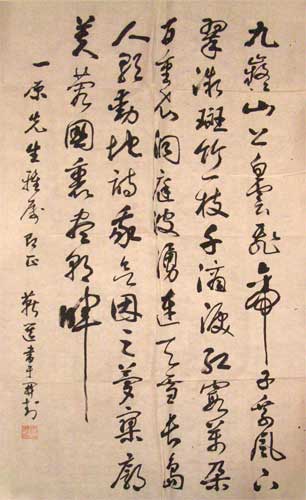 九嶷山上白雲飛帝子乘風下
翠微斑竹一枝千滴淚紅霞萬朵
百重衣洞庭波湧連天雪長島
人歌動地詩我欲因之夢寥廓
芙蓉國裏盡朝暉
一原先生雅屬即正 書于開封